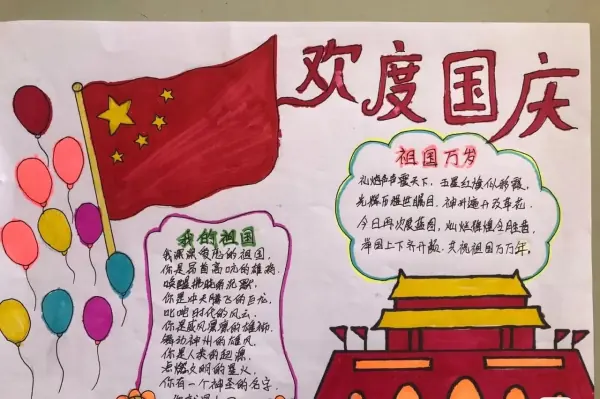 欢度国庆
祖国万岁
礼炮声声震天下，五星红旗似彩霞。
先辉百雄世瞩目，神州遍开改革花。
今日再次度盛国，灿烂辉煌全胜昔，
举国上下齐欢，共祝祖国万万年。
我的祖国
我深深爱恋的祖国，
你是昂首高吭的雄鸡，
唤醒拂晓的沉默，
你是冲天腾飞的巨龙，
叱咤时代的风云，
你是威风凛凛的雄狮，
舞动神州的雄风，
你是人类的起源，
点燃文明的星火，
你有一个神圣的名字，